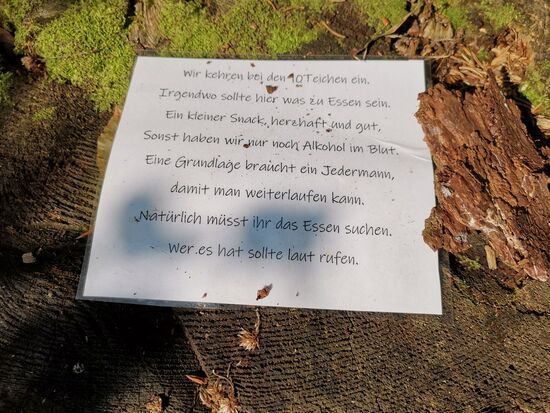 Wir kehren bei den 10 Teichen ein.
Irgendwo sollte hier was zu Essen sein.
Ein kleiner Snack, herzhaft und gut,
Sonst haben wir nur noch Alkohol im Blut.
Eine Grundlage braucht ein Jedermann,
damit man weiterlaufen kann.
Natürlich müsst ihr das Essen suchen.
Wer es hat sollte laut rufen.